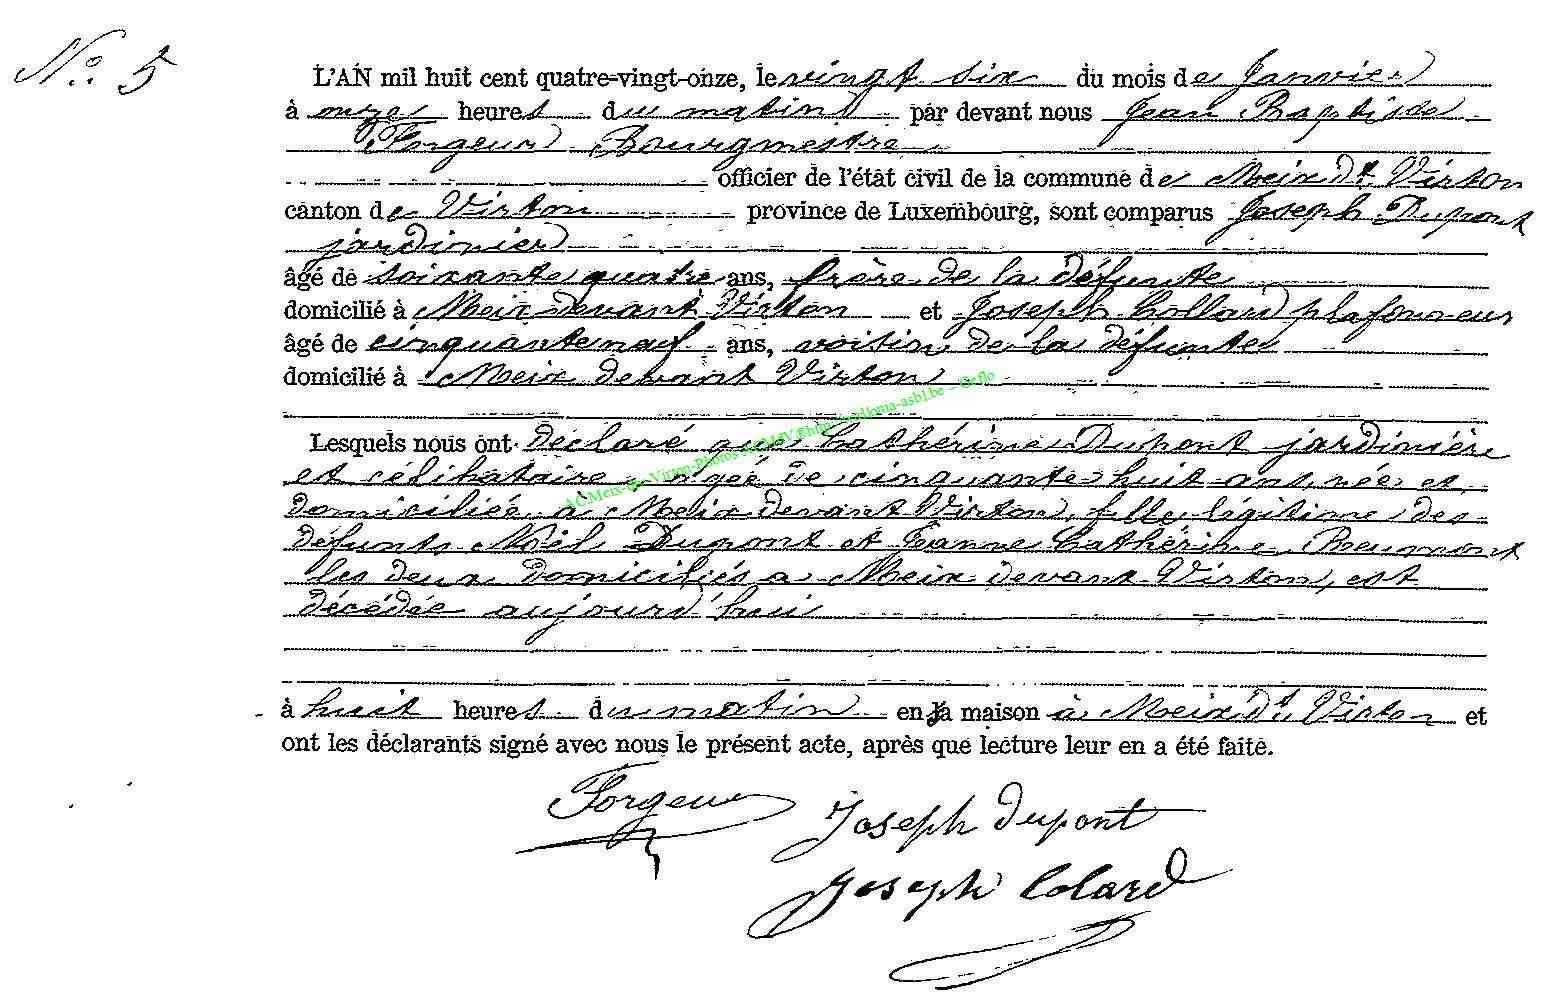 N° 5
L'AN mil huit cent quatre-vingt-onze, le vingt six du mois de Janvier
à onze heures du matin par devant nous Jean Baptiste
Forgeur Bourgmestre
officier de l'état civil de la commune de Meix dt Virton
canton de Virton province de Luxembourg, sont comparus Joseph Dupont
jardinier
âgé de soixante quatre ans, frère de la défunte
domicilié à Meix devant Virton et Joseph Collard plafonneur
âgé de cinquanteneuf ans, voisin de la défunte
domicilié à Meix devant Virton
Lesquels nous ont déclaré que Cathérine Dupont jardinière
et célibataire âgée de cinquante huit ans, née et
domiciliée à Meix devant Virton, fille légitime des
défunts Noël Dupont et Jeanne Cathérine Reumont
les deux domiciliés a Meix devant Virton, est
décédée aujourd'hui
à huit heures du matin en sa maison à Meix dt Virton et
ont les déclarants signé avec nous le présent acte, après que lecture leur en a été faite.
Forgeur
Joseph Dupont
Joseph Colard